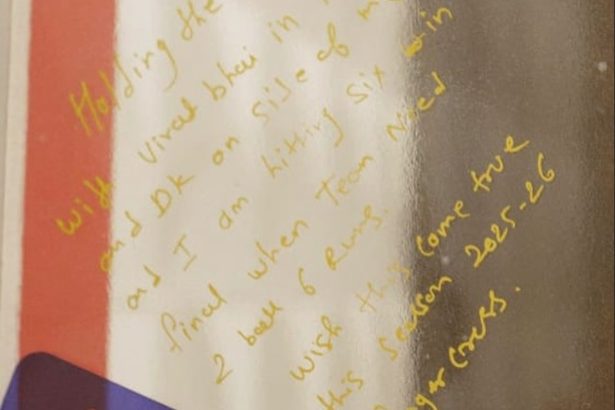 Holding the
with Virat bhai in
and DK on side of m
and I am hitting six in
final when Team Need
2 ball 6 Runs.
wish this come true
this Season 2025-26